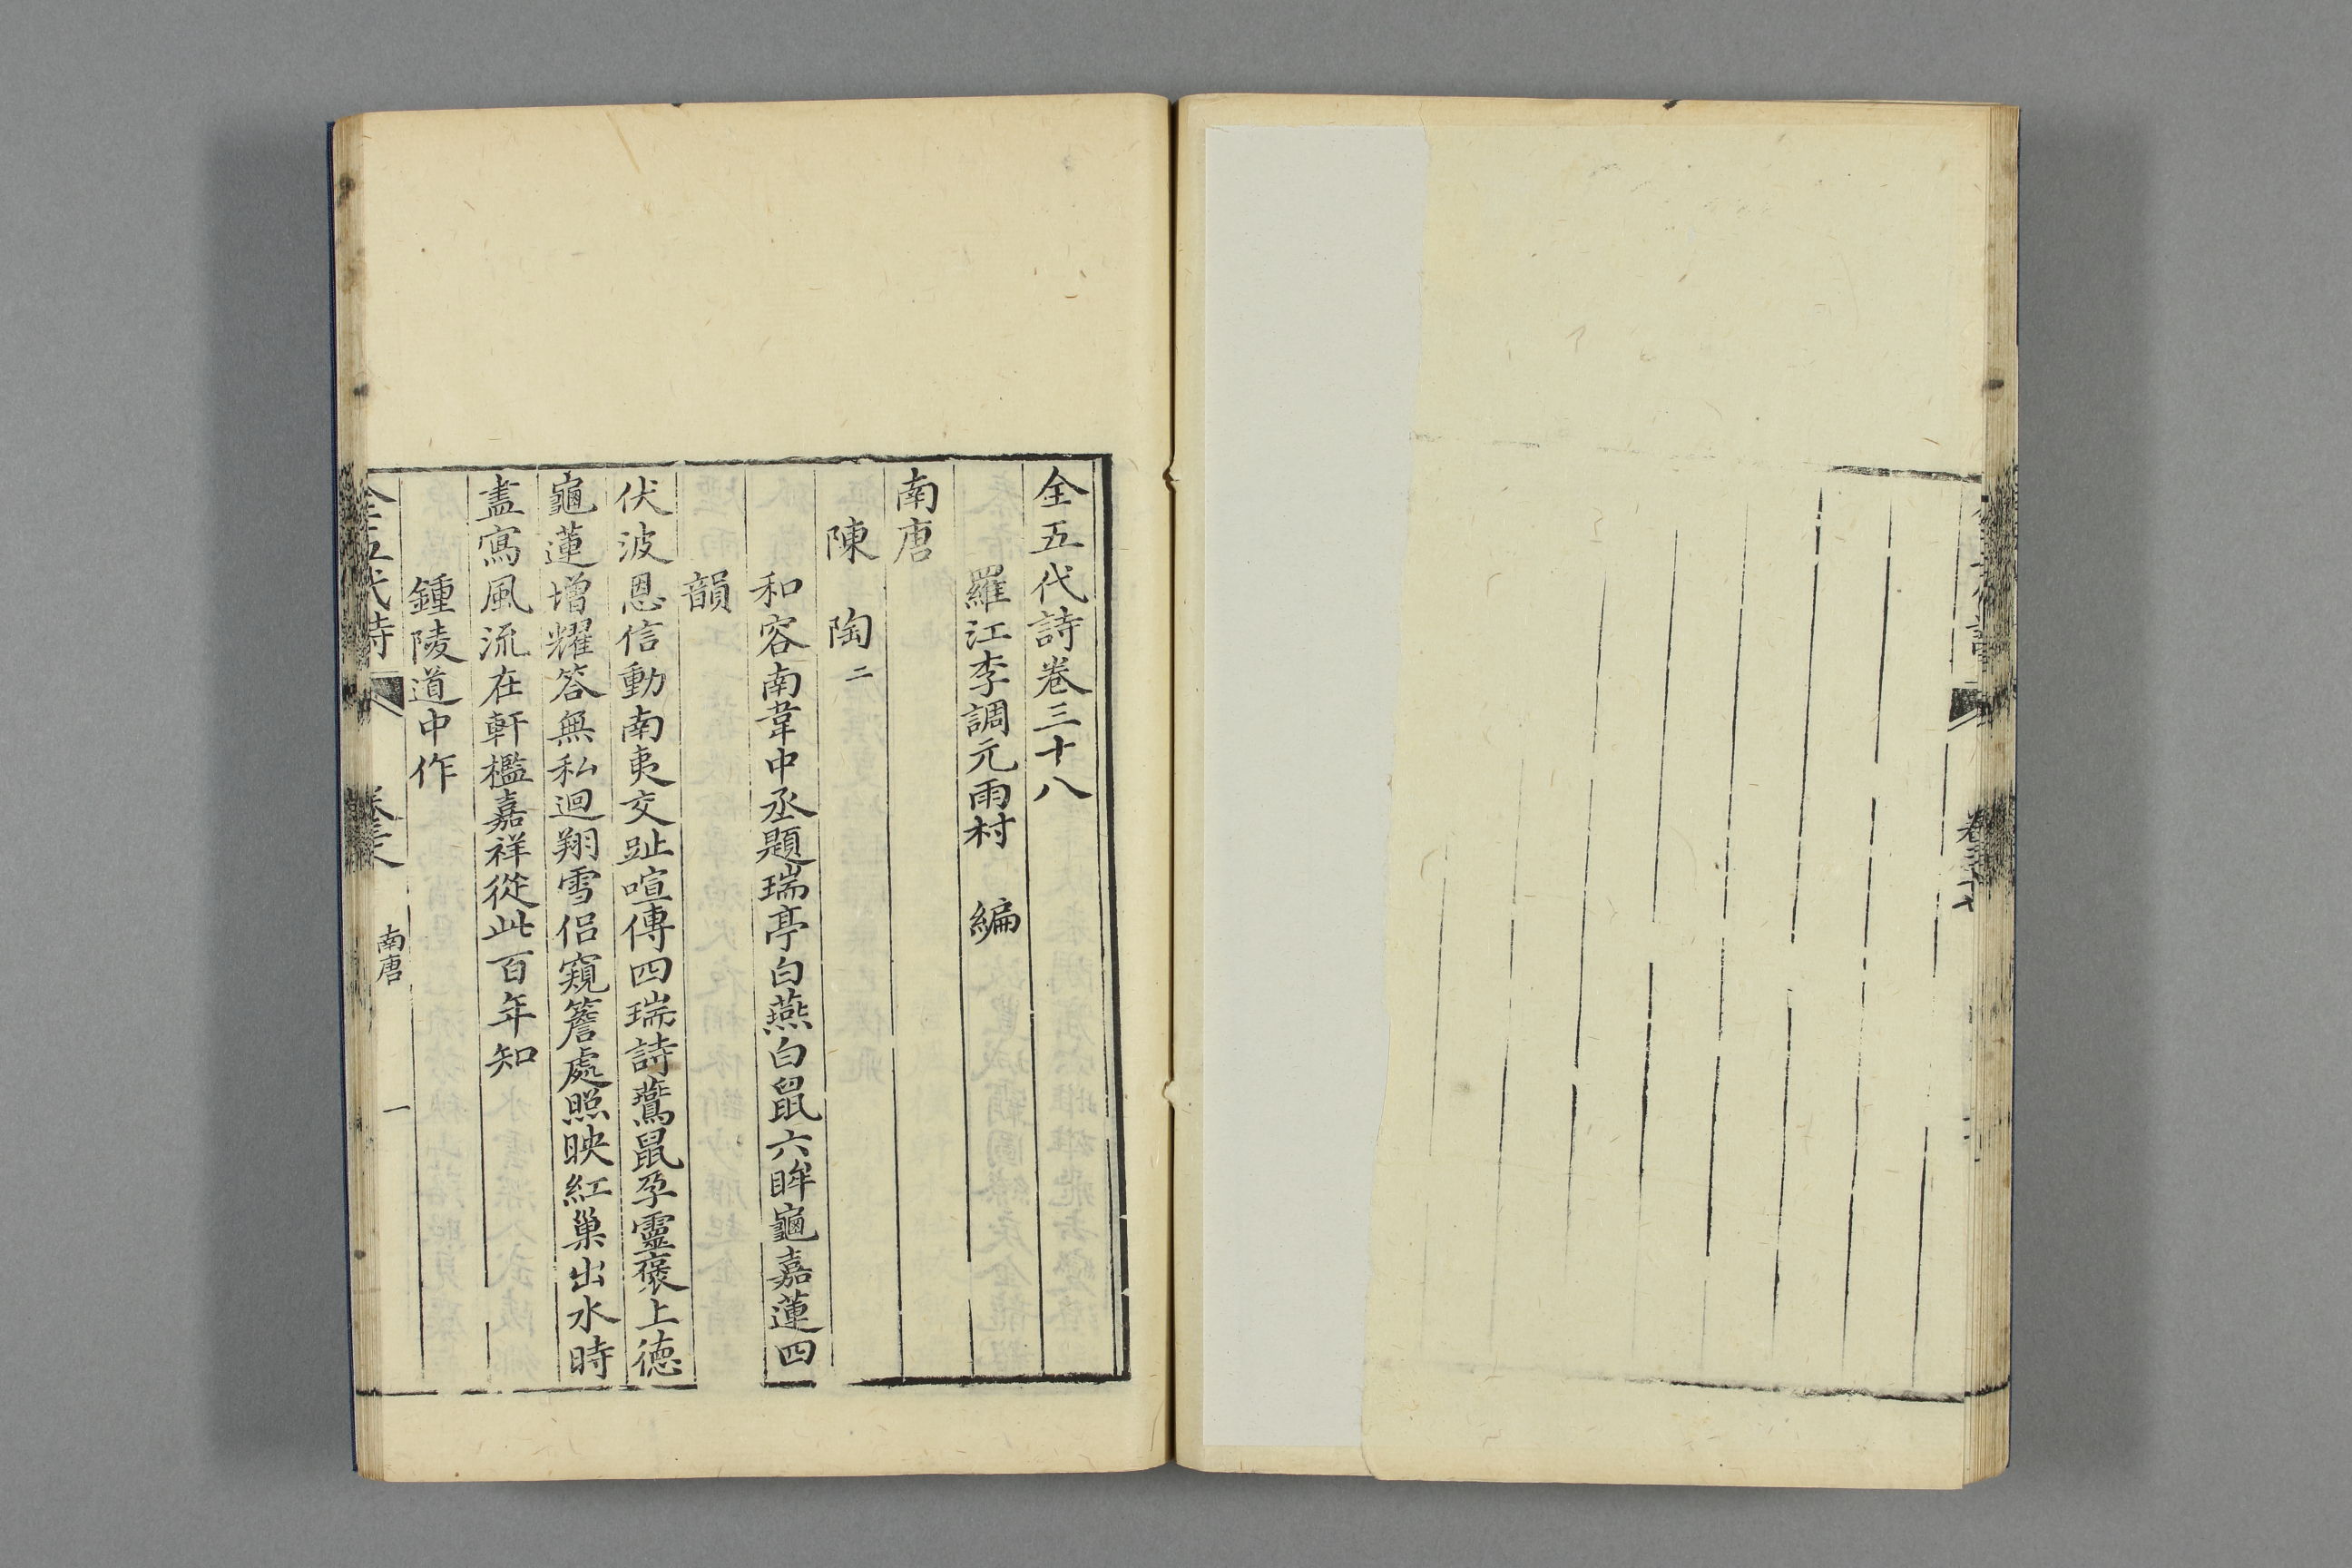 全五代詩卷三十八
羅江李調元雨村 編
南唐
陳 陶二
和容南韋中丞題瑞亭白燕白鼠六眸龜嘉蓮四
韻
伏波恩信動南夷交趾喧傳四瑞詩鷰鼠孕靈褒上德
龜蓮增耀答無私迴翔雪侶窺簷處照映紅巢出水時
盡寫風流在軒檻嘉祥從此百年知
鍾陵道中作
全五代詩 卷三十八 南唐 一